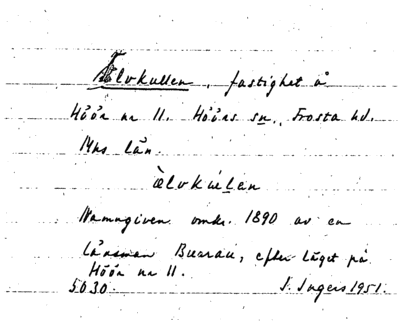 Älvkullen, fastighet å
Höör nr 11. Höörs sn, Frosta hd.
Mhs län.
älvkulen
Namngiven omkr. 1890 av en
länsman Burau, efter läget på
Höör nr 11.
5030. I. Ingers 1951.